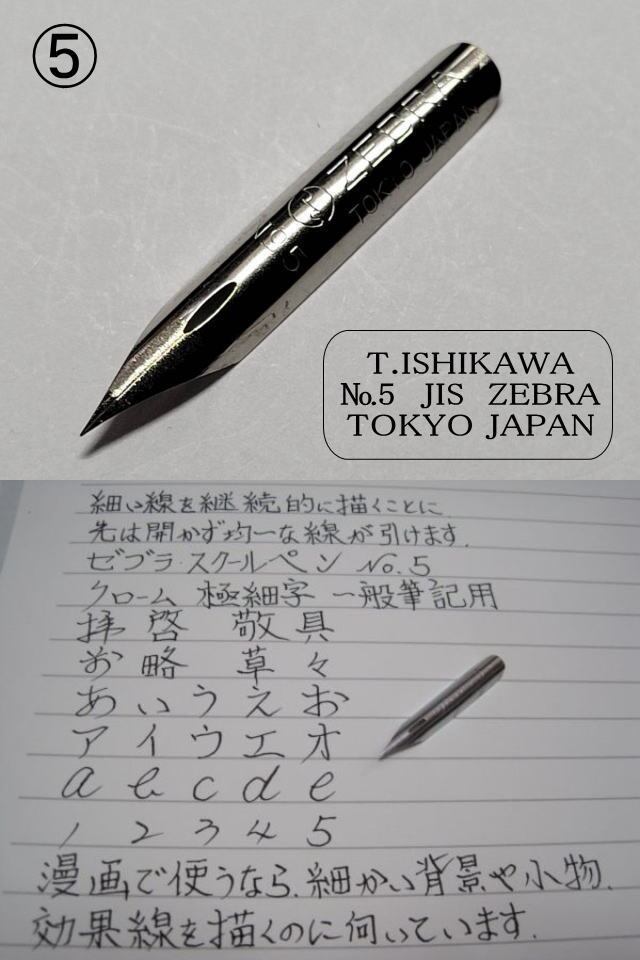 ⑤
No.5 ZEBRA
TOKYO JAPAN
T.ISHIKAWA
№.5 JIS ZEBRA
TOKYO JAPAN
細い線を継続的に描くことに
先は開かず均一な線が引けます.
ゼブラ・スクールペン No.5
クローム 極細字 一般筆記用
拝啓 敬具
前略 草々
あいうえお
アイウエオ
a b c d e
1 2 3 4 5
漫画で使うなら、細かい背景や小物、
効果線を描くのに向いています.